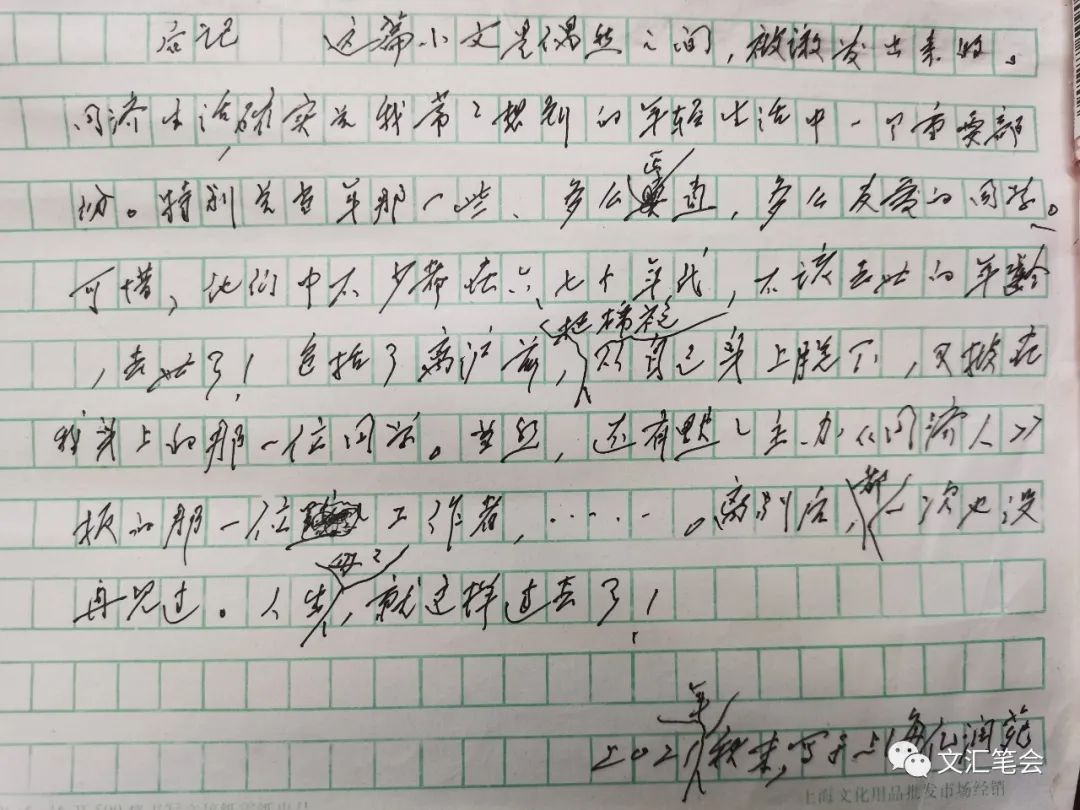 后记 这篇小文是偶然之间，被激发出来的。
同济生活，确实是我常常想到的年轻生活中一个重要部
份。特别是当年那一些、多么正直，多么友爱的同学。
可惜，他们中不少都在六、七十年代，不该去世的年龄
，去世了！包括了离沪前，把棉袍从自己身上脱下，又披在
我身上的那一位同学。当然，还有默默主办《同济人》
报的那一位工作者，……。离别后，都一次也没
再见过。人生，每每就这样过去了！
2021年秋末，写于上海仁润苑
文汇笔会
上海文化用品批发市场经销